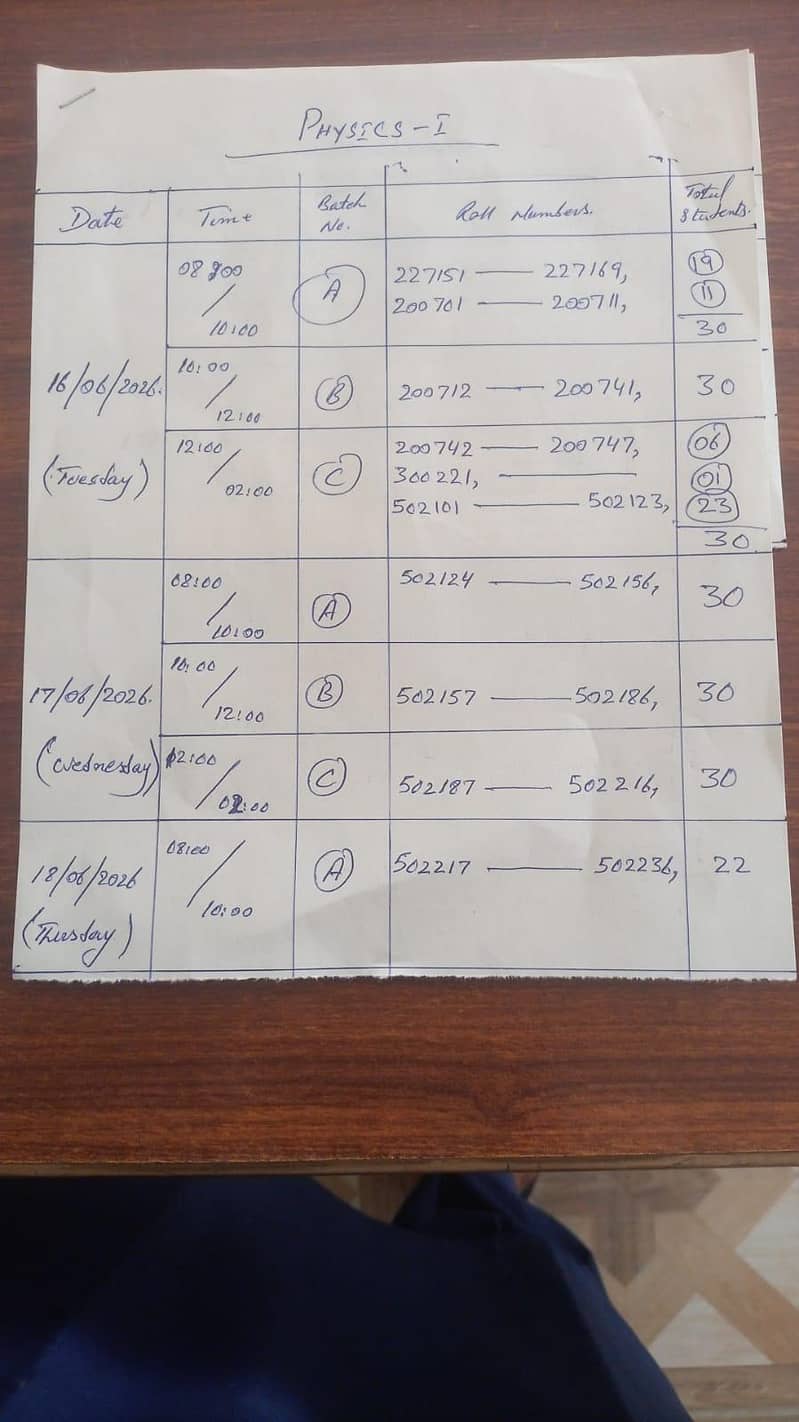 PHYSICS - I
Date Time Batch No. Roll Numbers. Total Students.
16/06/2026. (Tuesday)
08:00 / 10:00 A 227151 — 227169, 19
200701 — 200711, 11
30
10:00 / 12:00 B 200712 — 200741, 30
12:00 / 02:00 C 200742 — 200747, 06
300221, — 01
502101 — 502123, 23
30
17/06/2026. (Wednesday)
08:00 / 10:00 A 502124 — 502156, 30
10:00 / 12:00 B 502157 — 502186, 30
12:00 / 02:00 C 502187 — 502216, 30
18/06/2026 (Thursday)
08:00 / 10:00 A 502217 — 502236, 22